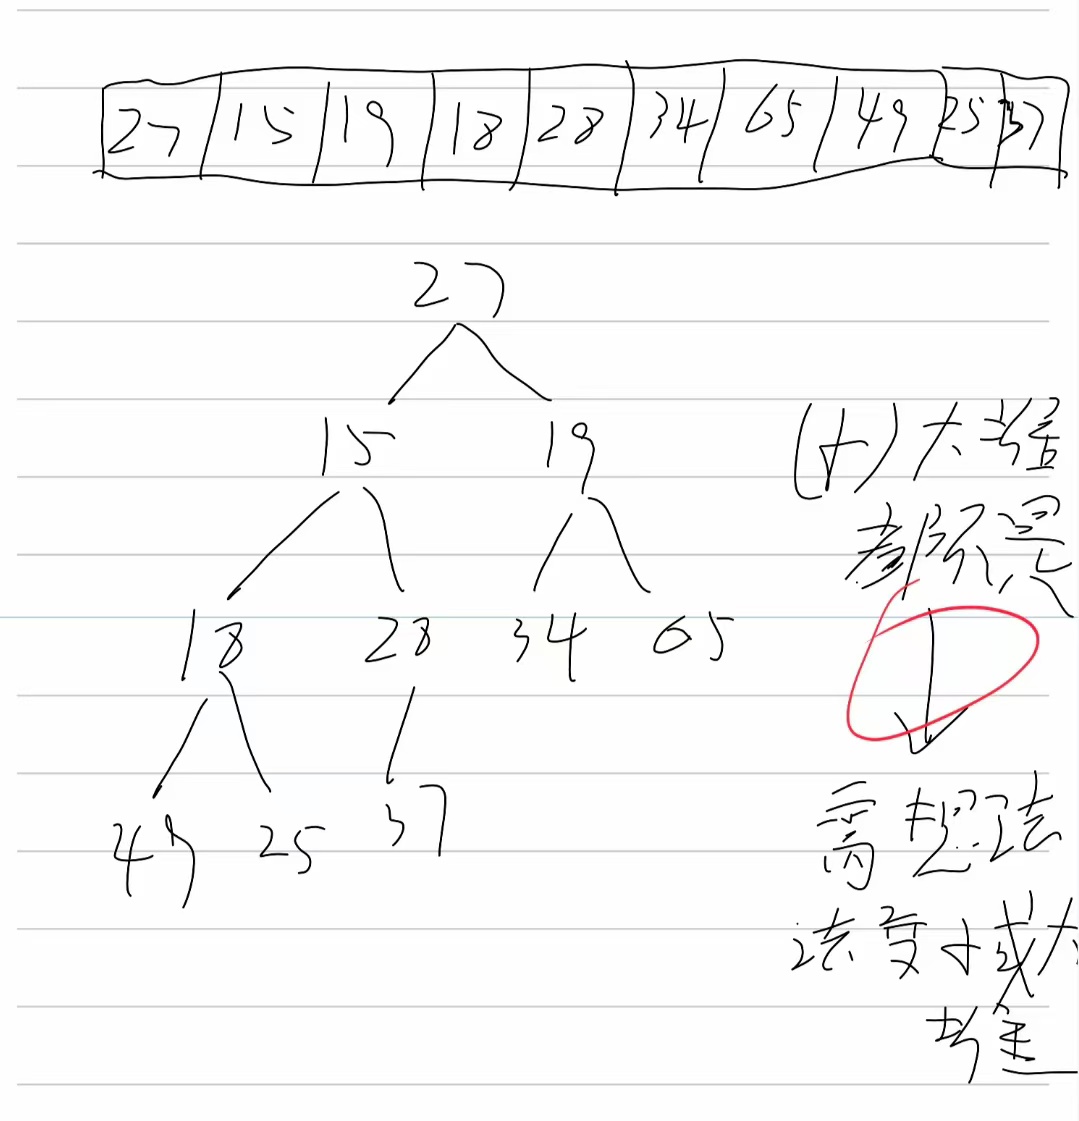 27 15 19 18 28 34 65 49 25 37
27
15 19
18 28 34 65
49 25 37
(小)大堆
都不是
需想法
法变小或大
堆